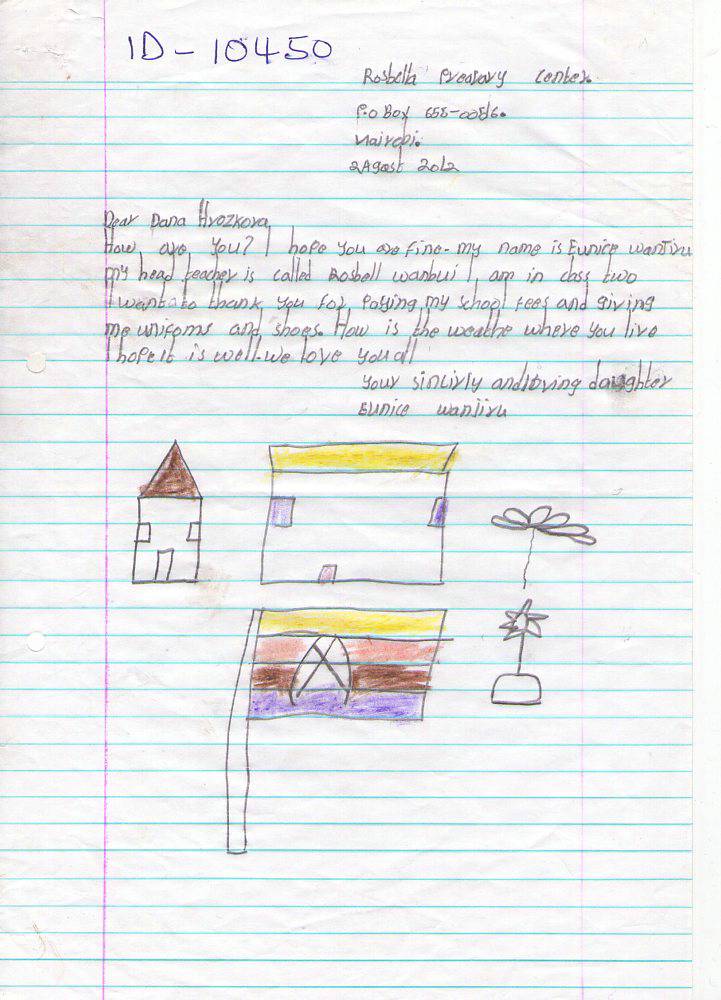 ID - 10450
Rosbella Preasary Center.
P.o Box 658-00516.
Nairobi.
2 Agost 2012
Dear Dana Hrozkova,
How are you? I hope you are fine- my name is Eunice wanjiru
my head teacher is called Rosbell wanbui I am in class two
I want to thank you for Paying my school fees and giving
me unifoms and shoes. How is the weathe where you live
I hope it is well-we love you all
your sincirly and loving daughter
Eunice wanjiru